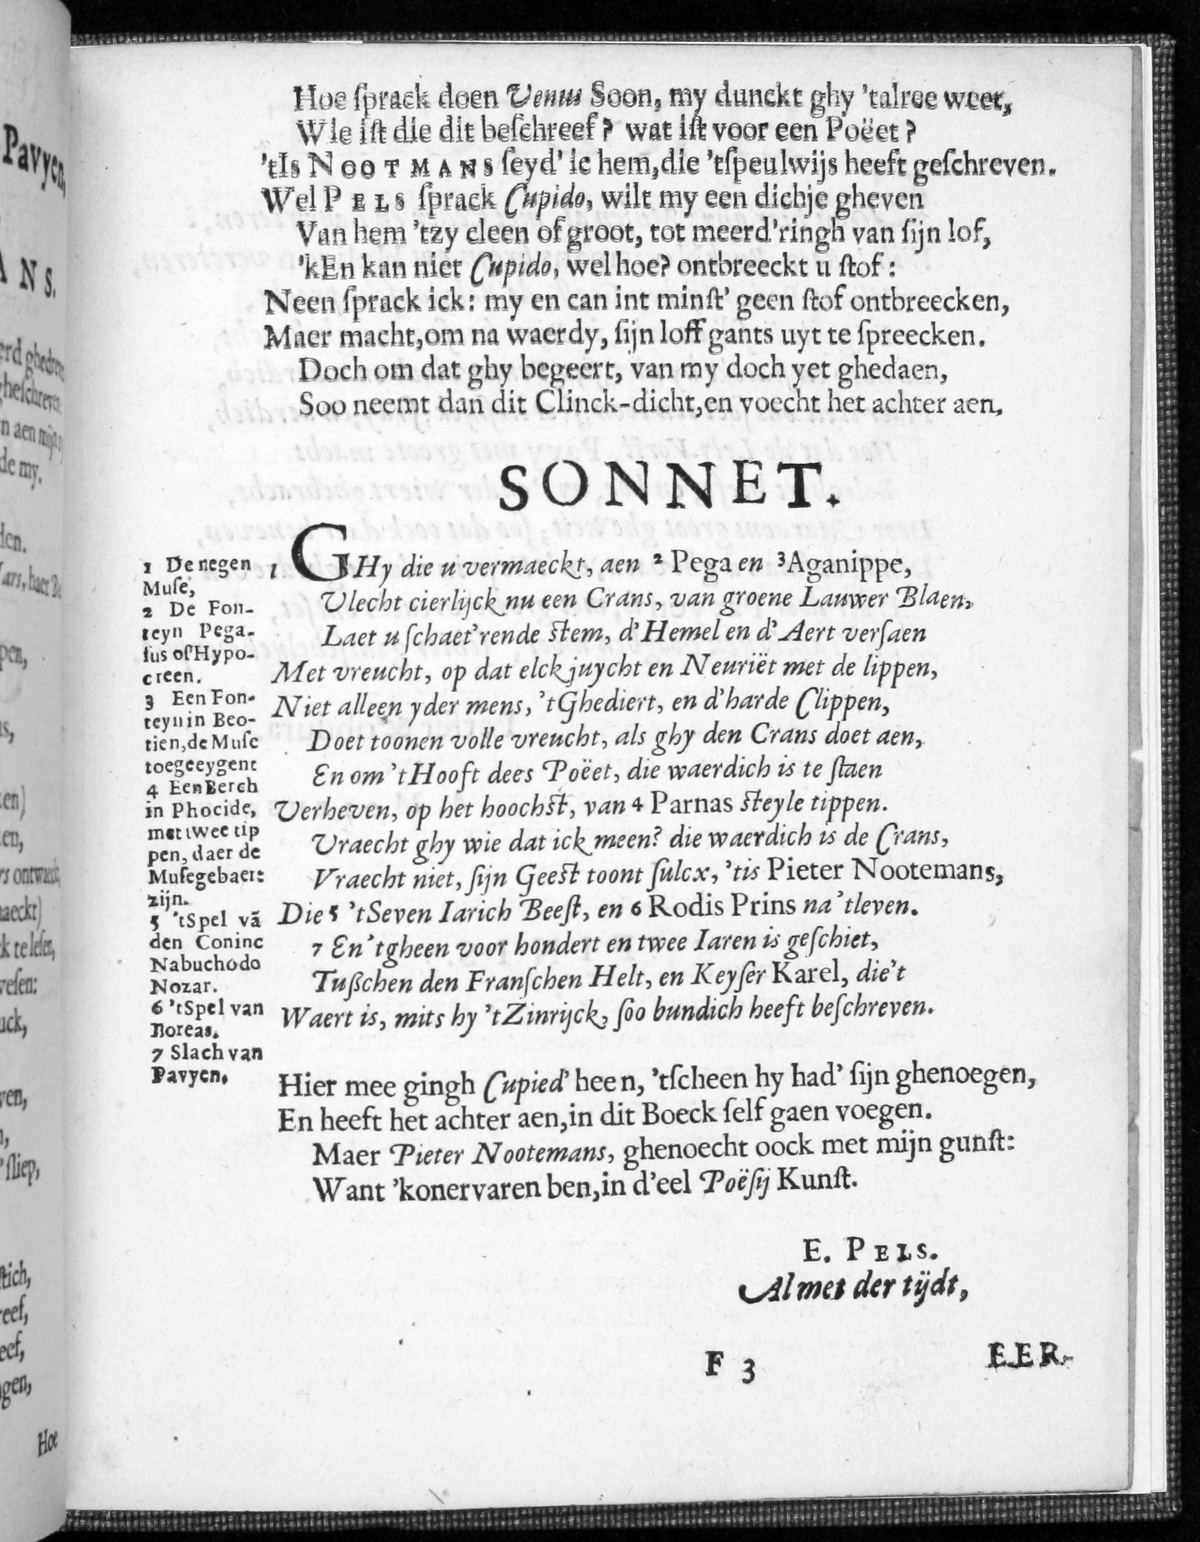 Hoe ſprack doen Venus Soon, my dunckt ghy 'talree weet,
Wie iſt die dit beſchreef? wat iſt voor een Poëet?
'tIs NOOTMANS ſeyd' ic hem, die 'tſpeulwijs heeft geſchreven.
Wel PELS ſprack Cupido, wilt my een dichje gheven
Van hem 'tzy cleen of groot, tot meerd'ringh van ſijn lof,
'kEn kan niet Cupido, wel hoe? ontbreeckt u ſtof:
Neen ſprack ick: my en can int minſt' geen ſtof ontbreecken,
Maer macht, om na waerdy, ſijn loff gants uyt te ſpreecken.
Doch om dat ghy begeert, van my doch yet ghedaen,
Soo neemt dan dit Clinck-dicht, en voecht het achter aen,
SONNET.
1 GHy die u vermaeckt, aen 2 Pega en 3 Aganippe,
Vlecht cierlijck nu een Crans, van groene Lauwer Blaen,
Laet u ſchaet'rende ſtem, d'Hemel en d'Aert verſaen
Met vreucht, op dat elck juycht en Neuriët met de lippen,
Niet alleen yder mens, 'tGhediert, en d'harde Clippen,
Doet toonen volle vreucht, als ghy den Crans doet aen,
En om 'tHooft dees Poëet, die waerdich is te ſtaen
Verheven, op het hoochſt, van 4 Parnas ſteyle tippen.
Vraecht ghy wie dat ick meen? die waerdich is de Crans,
Vraecht niet, ſijn Geeſt toont ſulcx, 'tis Pieter Nootemans,
Die 5 'tSeven Iarich Beeſt, en 6 Rodis Prins na'tleven.
7 En'tgheen voor hondert en twee Iaren is geſchiet,
Tußchen den Franſchen Helt, en Keyſer Karel, die't
Waert is, mits hy 'tZinrijck, ſoo bundich heeft beſchreven.
1 De negen
Muſe,
2 De Fon-
teyn Pega-
ſus of Hypo-
creen.
3 Een Fon-
teyn in Beo-
tien, de Muſe
toegeeygent
4 Een Berch
in Phocide,
met twee tip
pen, daer de
Muſe gebaert
zijn.
5 'tSpel vã
den Coninc
Nabuchodo
Nozar.
6 'tSpel van
Boreas.
7 Slach van
Pavyen.
Hier mee gingh Cupied' heen, 'tſcheen hy had' ſijn ghenoegen,
En heeft het achter aen, in dit Boeck ſelf gaen voegen.
Maer Pieter Nootemans, ghenoecht oock met mijn gunſt:
Want 'konervaren ben, in d'eel Poëſij Kunſt.
E. PELS.
Al met der tijdt,
F 3
EER-
Pavyen,
ANS.
Hoe